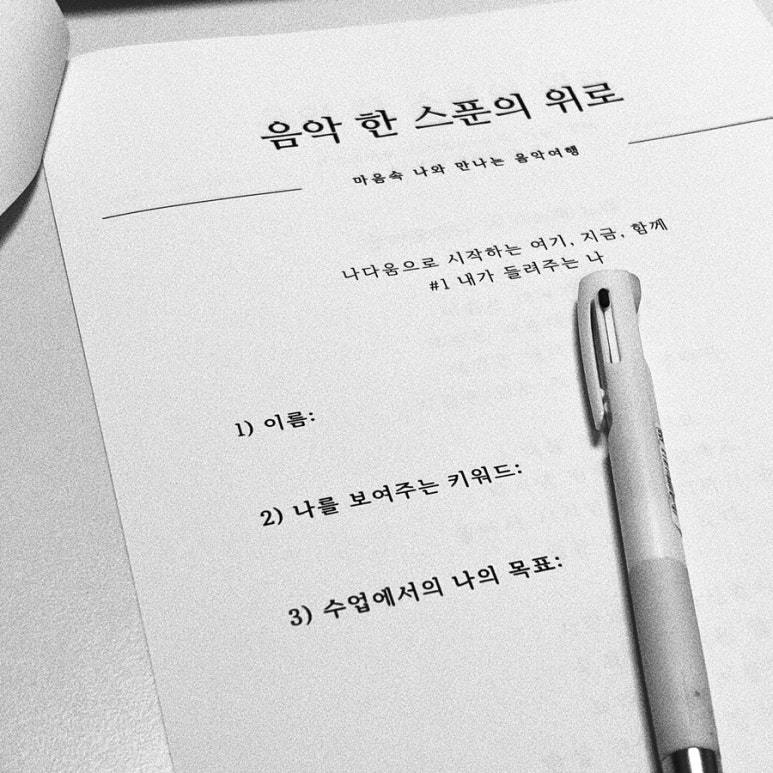 음악 한 스푼의 위로
마음속 나와 만나는 음악여행
나다움으로 시작하는 여기, 지금, 함께
#1 내가 들려주는 나
1) 이름:
2) 나를 보여주는 키워드:
3) 수업에서의 나의 목표: